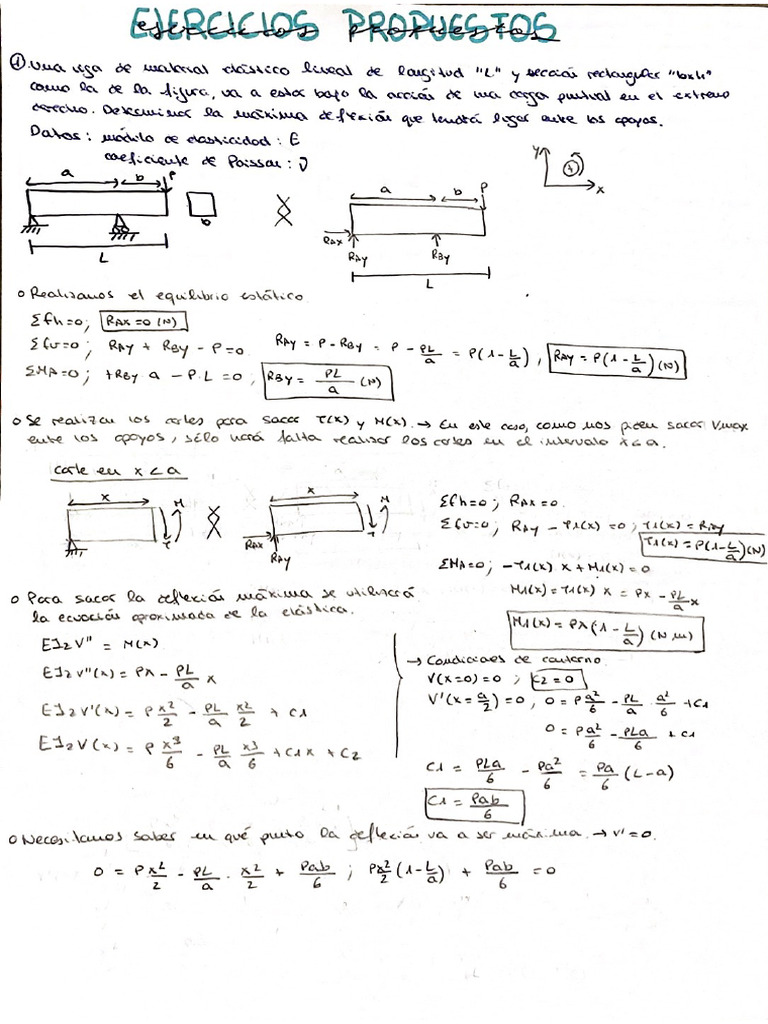 EJERCICIOS PROPUESTOS
① Una viga de material elástico lineal de longitud "L" y sección rectangular "bxh"
como la de la figura, va a estar bajo la acción de una carga puntual en el extremo
derecho. Determinar la máxima deflexión que tendrá lugar entre los apoyos.
Datos: módulo de elasticidad: E
coeficiente de Poisson: ν
a b P
b
L
RAX RAY RBY
a b P
L
y x +
o Realizamos el equilibrio estático.
Σfh=0; RAX=0 (N)
Σfv=0; RAY + RBY - P=0 RAY = P - RBY = P - PL/a = P(1-L/a), RAY = P(1-L/a)(N)
ΣMA=0; +RBY a - P·L=0, RBY = PL/a (N)
o Se realizan los cortes para sacar T(x) y M(x). → En este caso, como nos piden sacar Vmax
entre los apoyos, sólo hará falta realizar los cortes en el intervalo x<a.
corte en x<a
x M T
x M T RAX RAY
Σfh=0; RAX=0
Σfv=0; RAY - T1(x) = 0; T1(x) = RAY
T1(x) = P(1-L/a)(N)
ΣMA=0; -T1(x) x + M1(x) = 0
M1(x) = T1(x) x = Px - PL/a x
M1(x) = Px(1-L/a)(N m)
o Para sacar la deflexión máxima se utilizará
la ecuación aproximada de la elástica.
EIz V'' = M(x)
EIz V''(x) = Px - PL/a x
EIz V'(x) = P x²/2 - PL/a x²/2 + C1
EIz V(x) = P x³/6 - PL/a x³/6 + C1x + C2
→ Condiciones de contorno
V(x=0) = 0; C2=0
V'(x=a/2) = 0, 0 = P a²/6 - PL/a · a²/6 + C1
0 = Pa²/6 - PLa/6 + C1
C1 = PLa/6 - Pa²/6 = Pa/6 (L-a)
C1 = Pab/6
o Necesitamos saber en qué punto la deflexión va a ser máxima. → V'=0.
0 = P x²/2 - PL/a · x²/2 + Pab/6 ; Px²/2 (1-L/a) + Pab/6 = 0